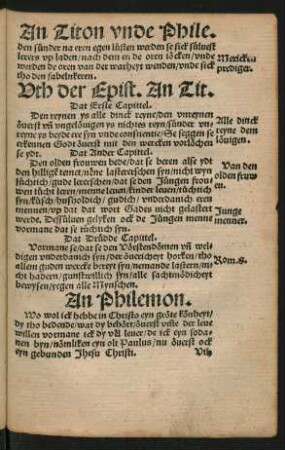 An Titon vnde Phile.
den sünder na eren egen lüsten werden se sick süluest
lerers vp laden/nach dem en de oren iöcken/vnde
werden de oren van der warheyt wenden/vnde sick
tho den fabelnkeren.
Mercket
prediger.
Vth der Epist. An Tit.
Dat Erste Capittel.
Den reynen ys alle dinck reyne/den vnreynen
ōuerst vn̄ vngelöuigen ys nichtes reyn/sünder vn-
reyne ys beyde ere syn vnde consientie/Se seggen se
erkennen Godt ōuerst mit den wercken vorlöchen
se ydt.
Alle dinck
reyne dem
löuigen.
Dat Ander Capittel.
Den olden frouwen bede/dat se beren alse ydt
den hilligē temet/nöne lasterersschen syn/nicht wyn
süchtich/gude lerersschen/dat se den Jüngen frou-
wen tüchtich leren/menne leuen/kinder leuen/tüchtich
syn/küsch/husholdich/gudich/vnderdanich eren
mennen/vp dat dat wort Gades nicht gelastert
werde. Dessüluen gelyken ock de Jüngen menne
vormane dat se tüchtich syn.
Van den
olden frou
wen.
Junge
menner.
Dat Drüdde Capittel.
Vormane se/dat se den Vörstendömen vn̄ wel-
digen vnderdanich syn/der öuericheyt horken/tho
allem guden wercke bereyt syn/nemande lastern/ni-
cht hadern/gunstwillich syn/alle sachtmödicheyt
bewysen/yegen alle Mynschen.
Rom.8.
An Philemon.
Wo wol ick hebbe in Christo eyn gröte könheyt/
dy tho bedende/wat dy behört/ōuerst vmme der leue
willen vormane ick dy vn̄ leuer/de ick eyn soda-
nen byn/nömliken eyn olt Paulus/nu ōuerst ock
eyn gebunden Jhesu Christi.
Vth